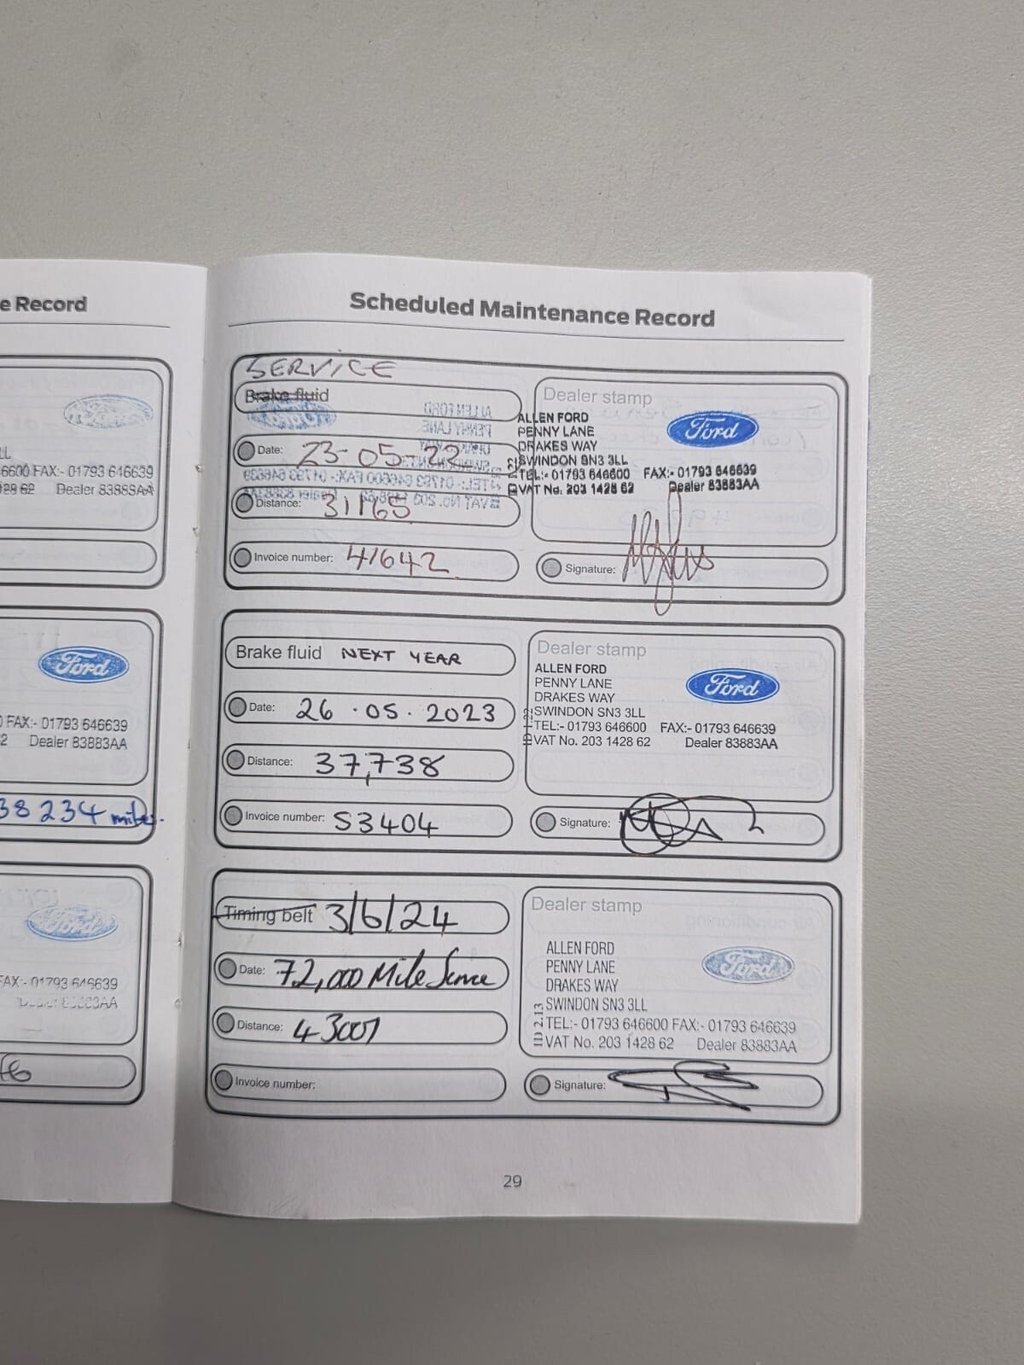 e Record
LL
6600 FAX:- 01793 646639
Dealer 83883AA
Ford
FAX:- 01793 646639
Dealer 83883AA
38234 miles.
Ford
FAX:- 01793 646639
Scheduled Maintenance Record
SERVICE
Brake fluid
Date: 23-05-22
Distance: 31165
Invoice number: 41642
Dealer stamp
ALLEN FORD
PENNY LANE
DRAKES WAY
SWINDON SN3 3LL
TEL:- 01793 646600 FAX:- 01793 646639
VAT No. 203 1428 62 Dealer 83883AA
Ford
Signature:
Brake fluid NEXT YEAR
Date: 26.05.2023
Distance: 37,738
Invoice number: S3404
Dealer stamp
ALLEN FORD
PENNY LANE
DRAKES WAY
SWINDON SN3 3LL
TEL:- 01793 646600 FAX:- 01793 646639
VAT No. 203 1428 62 Dealer 83883AA
Ford
Signature:
Timing belt 3/6/24
Date: 72,000 Mile Service
Distance: 43007
Invoice number:
Dealer stamp
ALLEN FORD
PENNY LANE
DRAKES WAY
SWINDON SN3 3LL
TEL:- 01793 646600 FAX:- 01793 646639
VAT No. 203 1428 62 Dealer 83883AA
ID 2.13
Ford
Signature:
29